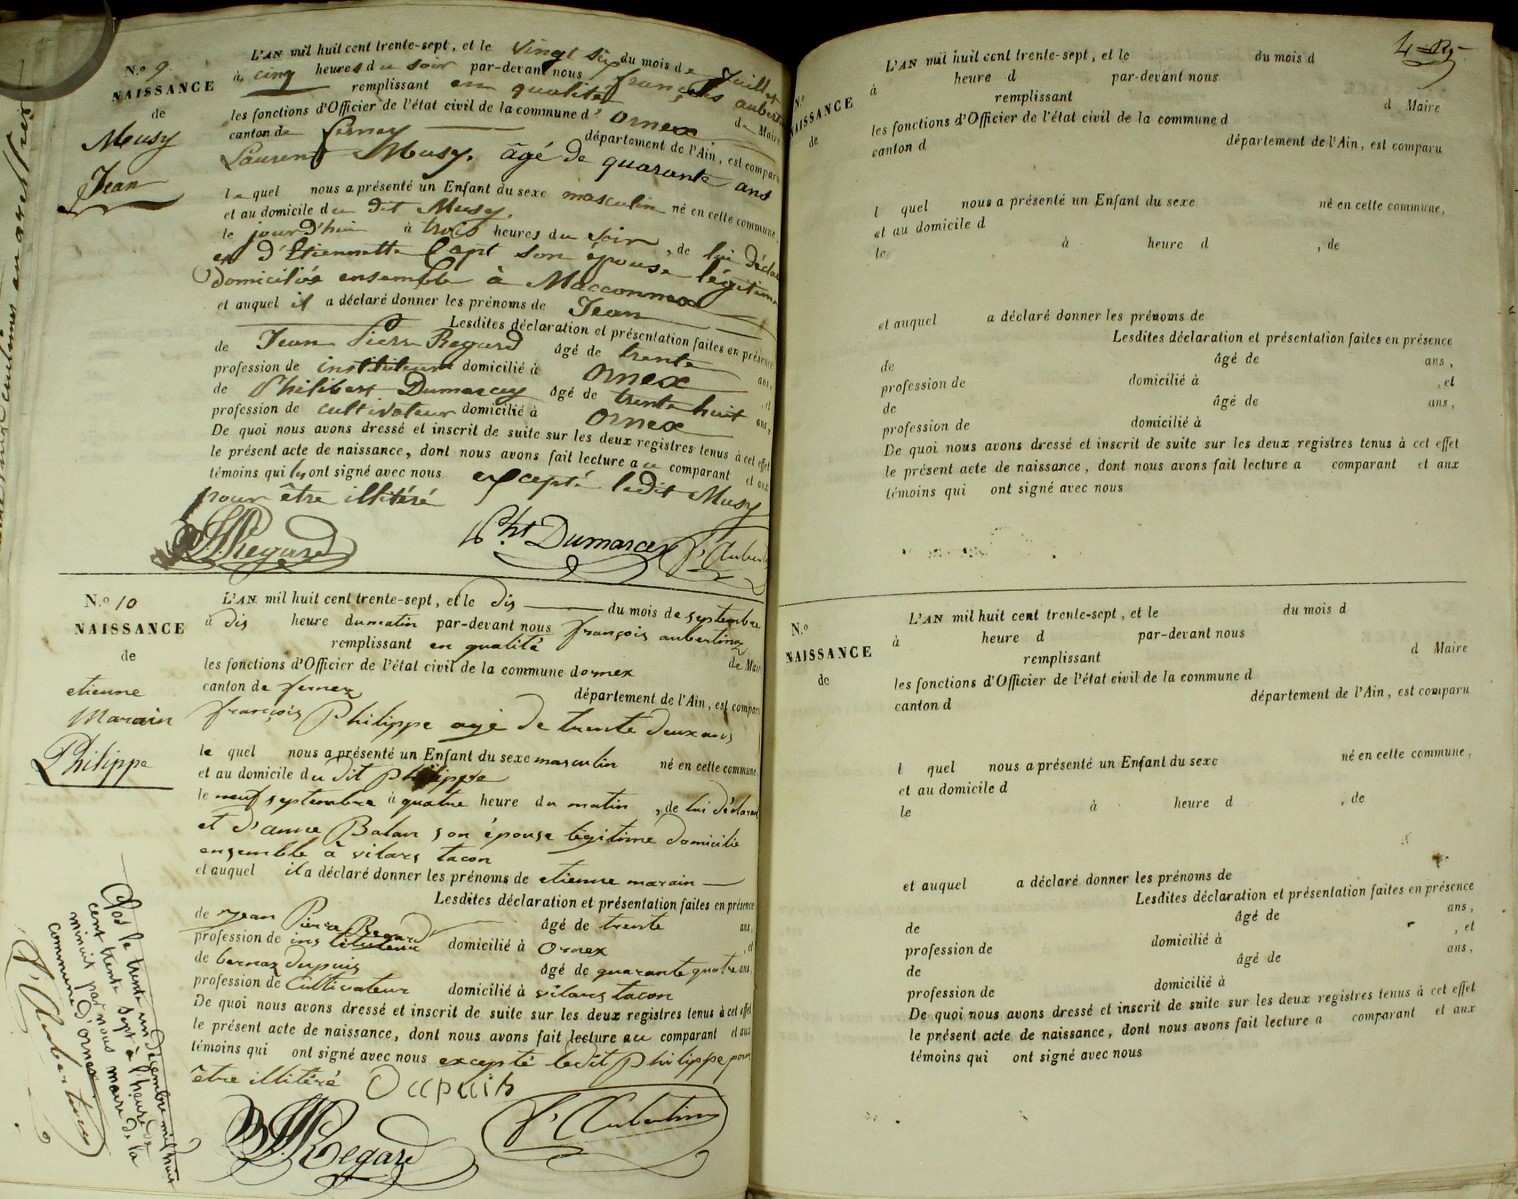 N.º 9
NAISSANCE
de
Musy
Jean
L'AN mil huit cent trente-sept, et le vingt six du mois de Juillet
à cinq heures du soir par-devant nous françois aubertin
remplissant en qualité de Maire
les fonctions d'Officier de l'état civil de la commune d'Ornex
canton de ferney département de l'Ain, est comparu
Laurent Musy, âgé de quarante ans
lequel nous a présenté un Enfant du sexe masculin né en cette commune,
et au domicile du dit Musy,
le jourd'hui à trois heures du soir, de lui déclarant
et d'Etiennette Capt son épouse légitime
Domiciliés ensemble à Macconnex
et auquel il a déclaré donner les prénoms de Jean
Lesdites déclaration et présentation faites en présence
de Jean Pierre Regard âgé de trente ans,
profession de instituteur domicilié à Ornex, et
de Philibert Dumarcey âgé de trente huit ans,
profession de cultivateur domicilié à Ornex
De quoi nous avons dressé et inscrit de suite sur les deux registres tenus à cet effet
le présent acte de naissance, dont nous avons fait lecture au comparant et aux
témoins qui ont signé avec nous excepté ledit Musy
pour être illitéré
JP Regard Pht Dumarcey F. Aubertin
N.º 10
NAISSANCE
de
etienne
Marain
Philippe
L'AN mil huit cent trente-sept, et le dis du mois de septembre
à dis heure du matin par-devant nous françois aubertin
remplissant en qualité de Maire
les fonctions d'Officier de l'état civil de la commune dornex
canton de fernex département de l'Ain, est comparu
françois Philippe agé de trente deux ans
lequel nous a présenté un Enfant du sexe masculin né en cette commune,
et au domicile du dit philippe
le neuf septembre à quatre heure du matin, de lui déclarant
et d'anne Balan son épouse légitime domicilié
ensemble à vilars tacon
et auquel il a déclaré donner les prénoms de etienne marain
Lesdites déclaration et présentation faites en présence
de Jean Pierre Regard âgé de trente ans,
profession de instituteur domicilié à Ornex, et
de bernaz dupuis âgé de quarante quatre ans,
profession de Cultivateur domicilié à vilars tacon
De quoi nous avons dressé et inscrit de suite sur les deux registres tenus à cet effet
le présent acte de naissance, dont nous avons fait lecture au comparant et aux
témoins qui ont signé avec nous excepté ledit philippe pour
être illitéré Dupuis
JP Regard F. Aubertin
Clos le trente un décembre mil huit
cent trente sept à l'heure de
minuit par nous maire de la
commune d'ornex
F. Aubertin
N.º
NAISSANCE
de
L'AN mil huit cent trente-sept, et le du mois d
à heure d par-devant nous
remplissant d Maire
les fonctions d'Officier de l'état civil de la commune d
canton d département de l'Ain, est comparu
l quel nous a présenté un Enfant du sexe né en cette commune,
et au domicile d
le à heure d , de
et auquel a déclaré donner les prénoms de
Lesdites déclaration et présentation faites en présence
de âgé de ans,
profession de domicilié à , et
de âgé de ans,
profession de domicilié à
De quoi nous avons dressé et inscrit de suite sur les deux registres tenus à cet effet
le présent acte de naissance, dont nous avons fait lecture a comparant et aux
témoins qui ont signé avec nous
N.º
NAISSANCE
de
L'AN mil huit cent trente-sept, et le du mois d
à heure d par-devant nous
remplissant d Maire
les fonctions d'Officier de l'état civil de la commune d
canton d département de l'Ain, est comparu
l quel nous a présenté un Enfant du sexe né en cette commune,
et au domicile d
le à heure d , de
et auquel a déclaré donner les prénoms de
Lesdites déclaration et présentation faites en présence
de âgé de ans,
profession de domicilié à , et
de âgé de ans,
profession de domicilié à
De quoi nous avons dressé et inscrit de suite sur les deux registres tenus à cet effet
le présent acte de naissance, dont nous avons fait lecture a comparant et aux
témoins qui ont signé avec nous